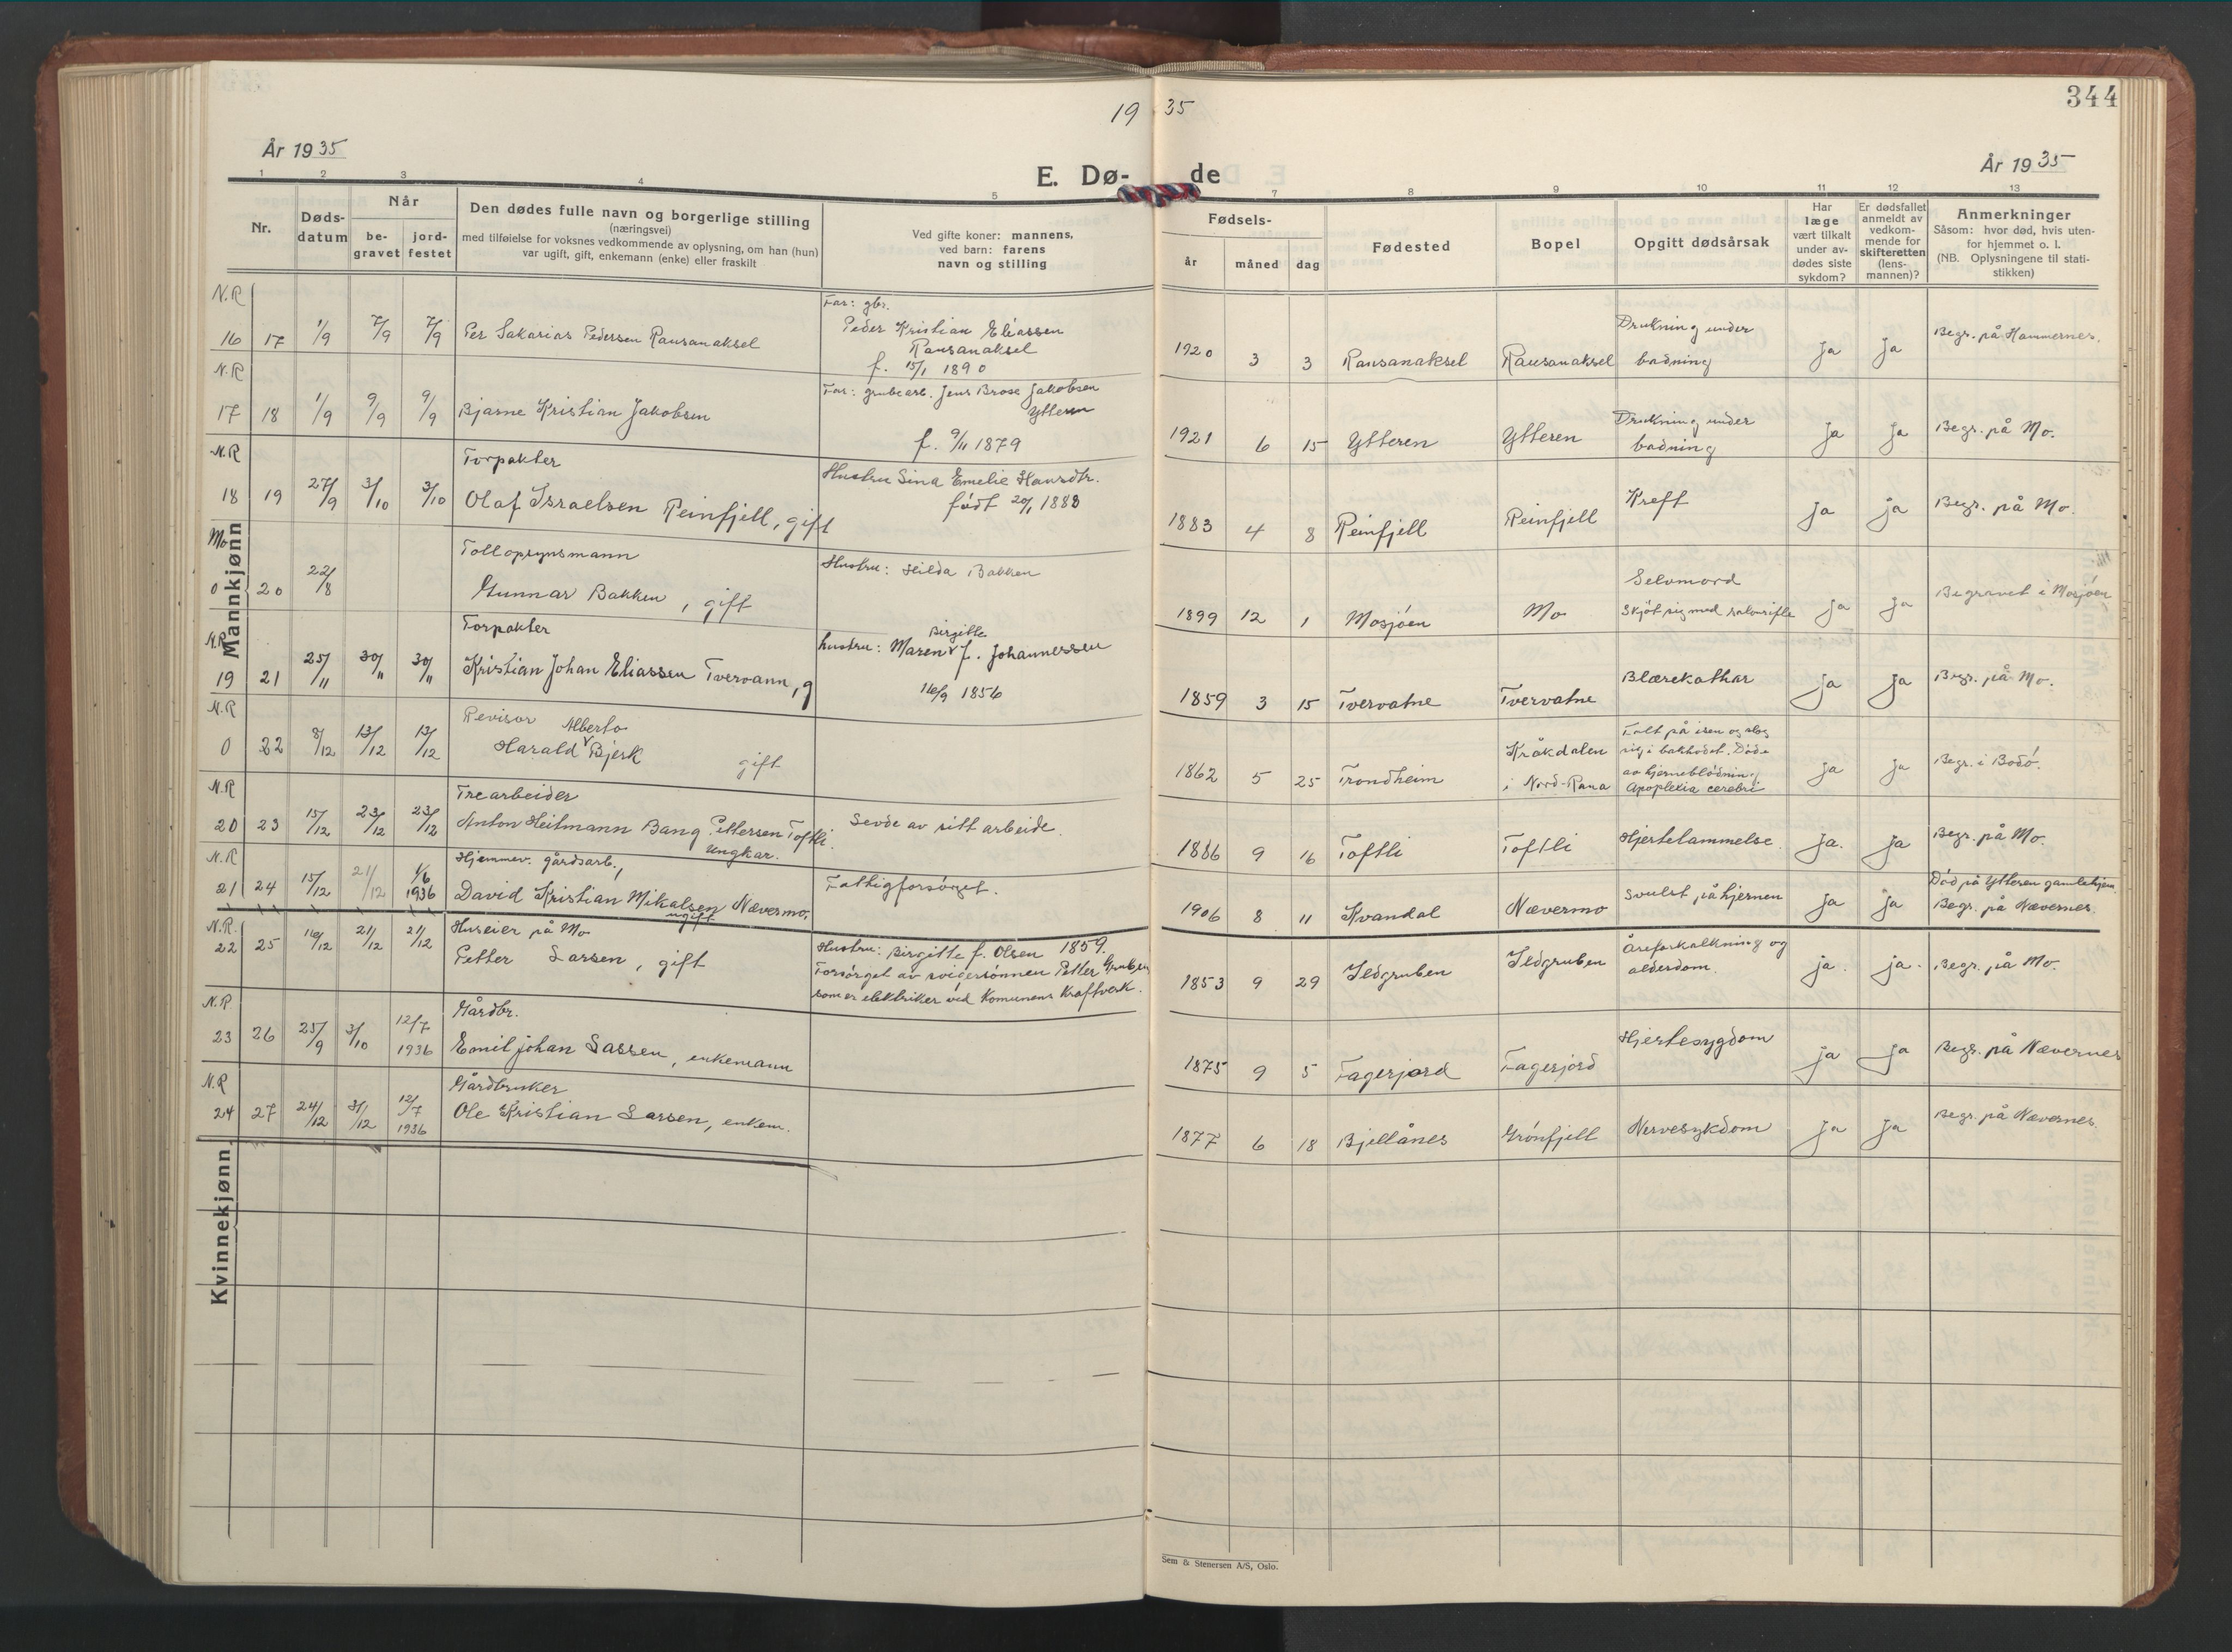 19 35
344
År 1935
År 1935
E. Dø-
de
1 2 3 4 5 7 8 9 10 11 12 13
Nr.
Døds-
datum
Når
be-
gravet
jord-
festet
Den dødes fulle navn og borgerlige stilling
(næringsvei)
med tilføielse for voksnes vedkommende av oplysning, om han (hun)
var ugift, gift, enkemann (enke) eller fraskilt
Ved gifte koner: mannens,
ved barn: farens
navn og stilling
Fødsels-
år måned dag
Fødested
Bopel
Opgitt dødsårsak
Har
læge
vært tilkalt
under av-
dødes siste
sykdom?
Er dødsfallet
anmeldt av
vedkom-
mende for
skifteretten
(lens-
mannen)?
Anmerkninger
Såsom: hvor død, hvis uten-
for hjemmet o. l.
(NB. Oplysningene til stati-
stikken)
Mannkjønn
N.R
16 17 1/9 7/9 7/9 Per Sakarias Pedersen Rausanaksel
Far: gbr.
Peder Kristian Eliassen
Rausanaksel
f. 15/1 1890
1920 3 3 Rausanaksel Rausanaksel
Drukning under
badning
Ja Ja Begr. på Hammernes.
N.R
17 18 1/9 9/9 9/9 Bjarne Kristian Jakobsen
Far: grubearb. Jens Brose Jakobsen
Ytteren
f. 9/11 1879
1921 6 15 Ytteren Ytteren
Drukning under
badning
Ja Ja Begr. på Mo.
N.R
18 19 27/9 3/10 3/10
Forpakter
Olaf Israelsen Reinfjell, gift
Hustru Sina Emelie Hansdtr.
født 20/1 1888
1883 4 8 Reinfjell Reinfjell Kreft ja ja Begr. på Mo.
Mo
0 20 22/8
Tollopsynsmann
Gunnar Bakken, gift
Hustru: Hilda Bakken
1899 12 1 Mosjøen Mo
Selvmord
Skjøt sig med salonrifle
ja ja Begravet i Mosjøen
N.R
19 21 25/11 30/11 30/11
Forpakter
Kristian Johan Eliassen Tvervann, g
Birgitte
hustru: Maren f. Johannessen
16/9 1856
1859 3 15 Tvervatne Tvervatne Blærekathar ja ja Begr. på Mo.
N.R
0 22 8/12 13/12 13/12
Revisor Alberto
Harald Bjerk gift
1862 5 25 Trondheim
Kråkdalen
i Nord-Rana
Falt på isen og slog
sig i bakhodet. Døde
av hjerneblødning
Apoplexia cerebri
ja ja Begr. i Bodø.
N.R
20 23 15/12 23/12 23/12
Trearbeider
Anton Heitmann Bang Pettersen Toftli.
ungkar.
Levde av sitt arbeide.
1886 9 16 Toftli Toftli Hjertelammelse. ja. ja Begr. på Mo.
N.R
21 24 15/12 21/12 1/6 1936
Hjemmev. gårdsarb.,
David Kristian Mikalsen Nævermo,
ugift
Fattigforsørget.
1906 8 11 Kvandal Nævermo Svulst på hjernen ja ja
Død på Ytteren gamlehjem.
Begr. på Nævernes.
N.R.
22 25 16/12 21/12 21/12
Huseier på Mo
Petter Larsen, gift
Hustru: Birgitte f. Olsen 1859.
Forsørget av svigersønnen Petter Gruben
som er elektriker ved Komunens Kraftverk.
1853 9 29 Ildgruben Ildgruben
Åreforkalkning og
alderdom.
ja. ja. Begr. på Mo.
N.R.
23 26 25/9 3/10 12/7 1936
Gårdbr.
Emil Johan Larsen, enkemann
1875 9 5 Fagerjord Fagerjord Hjertesygdom ja ja Begr. på Nævernes
N.R
24 27 24/12 31/12 12/7 1936
Gårdbruker
Ole Kristian Larsen, enkem.
1877 6 18 Bjellånes Grønfjell Nervesykdom ja ja Begr. på Nævernes.
Kvinnekjønn.
Sem & Stenersen A/S, Oslo.